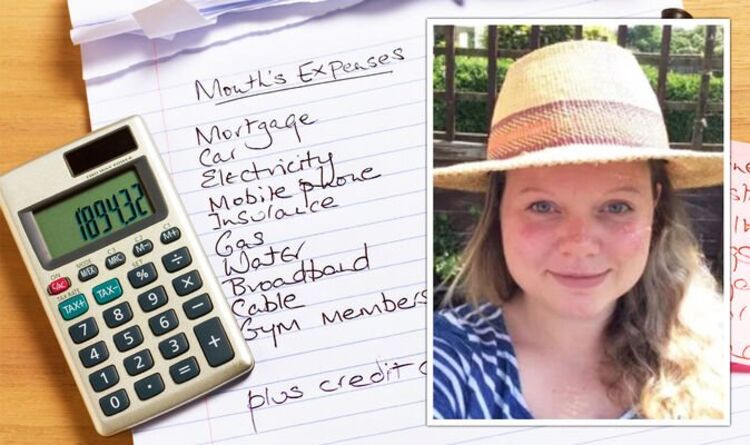 Month's Expenses
Mortgage
Car
Electricity
Mobile phone
Insurance
Gas
Water
Broadband
Cable
Gym Members
plus credit
1894.32
ON
C/AC
MODE
M(EX)
C3
MRC
C2
M-
C1
M+
TAX RATE
TAX+
TAX-
SET
%
÷
7
8
9
×
4
5
6
-
1
2
3
+
0
.
=